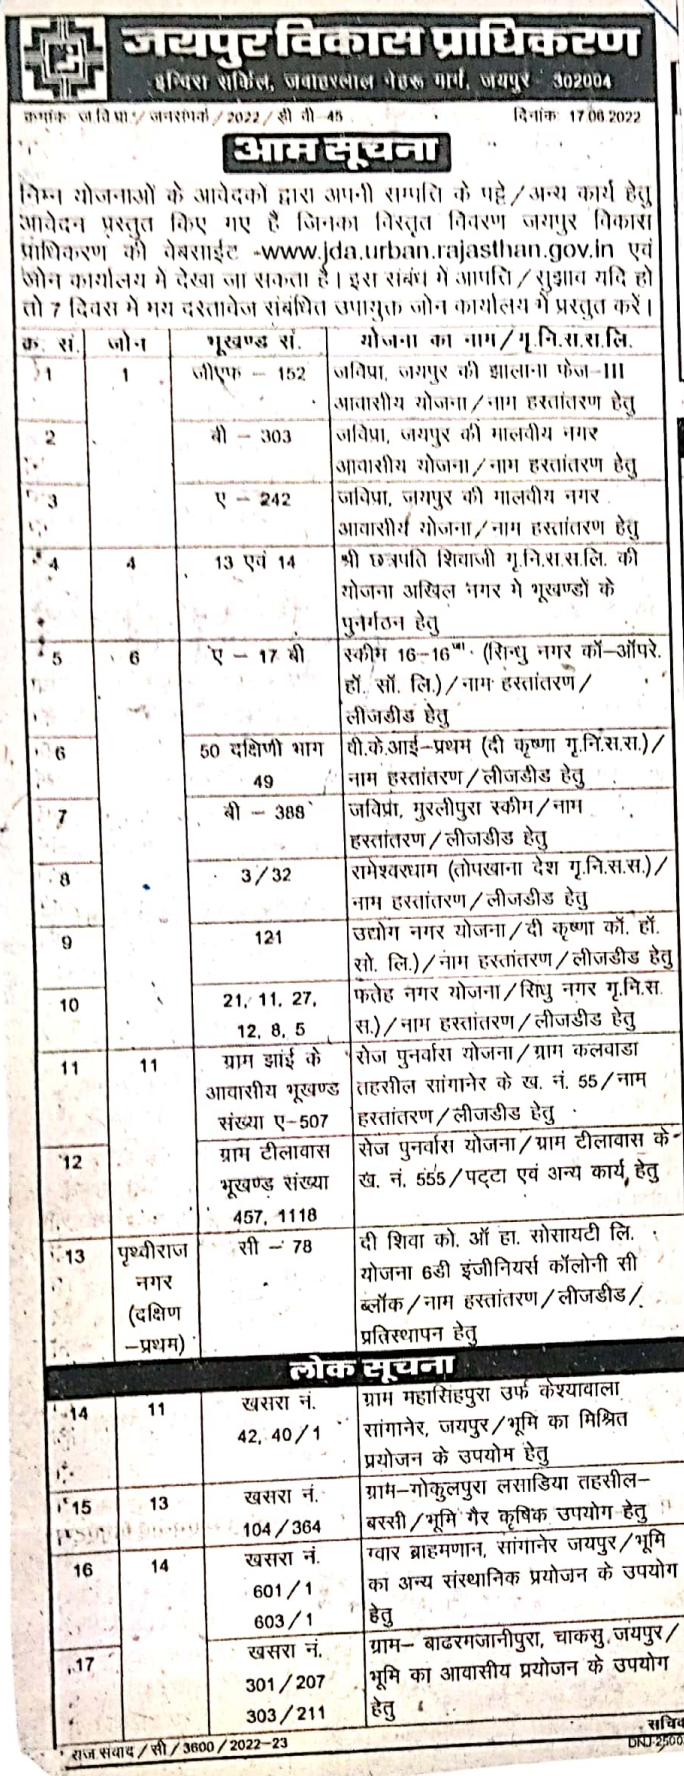 जयपुर विकास प्राधिकरण
इन्दिरा सर्किल, जवाहरलाल नेहरू मार्ग, जयपुर - 302004
क्रमांक ज.वि.प्रा./जनसंपर्क/2022/सी वी-45
दिनांक: 17.06.2022
आम सूचना
निम्न योजनाओं के आवेदकों द्वारा अपनी सम्पति के पट्टे/अन्य कार्य हेतु
आवेदन प्रस्तुत किए गए है जिनका विस्तृत विवरण जयपुर विकास
प्राधिकरण की वेबसाईट -www.jda.urban.rajasthan.gov.in एवं
जोन कार्यालय में देखा जा सकता है। इस संबंध में आपति/सुझाव यदि हो
तो 7 दिवस में मय दस्तावेज संबंधित उपायुक्त जोन कार्यालय में प्रस्तुत करें।
क्र. सं. जोन भूखण्ड सं. योजना का नाम/गृ.नि.स.स.लि.
1 1 जीएफ - 152 जविप्रा, जयपुर की झालाना फेज-III
आवासीय योजना/नाम हस्तांतरण हेतु
2 बी - 303 जविप्रा, जयपुर की मालवीय नगर
आवासीय योजना/नाम हस्तांतरण हेतु
3 ए - 242 जविप्रा, जयपुर की मालवीय नगर
आवासीय योजना/नाम हस्तांतरण हेतु
4 4 13 एवं 14 श्री छत्रपति शिवाजी गृ.नि.स.स.लि. की
योजना अखिल नगर मे भूखण्डों के
पुनर्गठन हेतु
5 6 ए - 17 बी स्कीम 16-16 (सिन्धु नगर कॉ-ऑपरे.
हॉ. सॉ. लि.)/नाम हस्तांतरण/
लीजडीड हेतु
6 50 दक्षिणी भाग वी.के.आई-प्रथम (दी कृष्णा गृ.नि.स.स.)/
49 नाम हस्तांतरण/लीजडीड हेतु
7 बी - 388 जविप्रा, मुरलीपुरा स्कीम/नाम
हस्तांतरण/लीजडीड हेतु
8 3/32 रामेश्वरधाम (तोपखाना देश गृ.नि.स.स.)/
नाम हस्तांतरण/लीजडीड हेतु
9 121 उद्योग नगर योजना/दी कृष्णा कॉ. हॉ.
सो. लि.)/नाम हस्तांतरण/लीजडीड हेतु
10 21, 11, 27, फतेह नगर योजना/सिंधु नगर गृ.नि.स.
12, 8, 5 स.)/नाम हस्तांतरण/लीजडीड हेतु
11 11 ग्राम झांई के सेज पुनर्वास योजना/ग्राम कलवाडा
आवासीय भूखण्ड तहसील सांगानेर के ख. नं. 55/नाम
संख्या ए-507 हस्तांतरण/लीजडीड हेतु
12 ग्राम टीलावास सेज पुनर्वास योजना/ग्राम टीलावास के
भूखण्ड संख्या ख. नं. 555/पट्टा एवं अन्य कार्य हेतु
457, 1118
13 पृथ्वीराज सी - 78 दी शिवा को. ऑ हा. सोसायटी लि.
नगर योजना 6डी इंजीनियर्स कॉलोनी सी
(दक्षिण ब्लॉक/नाम हस्तांतरण/लीजडीड/
-प्रथम) प्रतिस्थापन हेतु
लोक सूचना
14 11 खसरा नं. ग्राम महासिंहपुरा उर्फ केश्यावाला
42, 40/1 सांगानेर, जयपुर/भूमि का मिश्रित
प्रयोजन के उपयोम हेतु
15 13 खसरा नं. ग्राम-गोकुलपुरा लसाडिया तहसील-
104/364 बस्सी/भूमि गैर कृषिक उपयोग हेतु
16 14 खसरा नं. ग्वार ब्राहमणान, सांगानेर जयपुर/भूमि
601/1 का अन्य संस्थानिक प्रयोजन के उपयोग
603/1 हेतु
17 खसरा नं. ग्राम- बाढरगजानीपुरा, चाकसु जयपुर/
301/207 भूमि का आवासीय प्रयोजन के उपयोग
303/211 हेतु
सचिव
राज.संवाद/सी/3600/2022-23